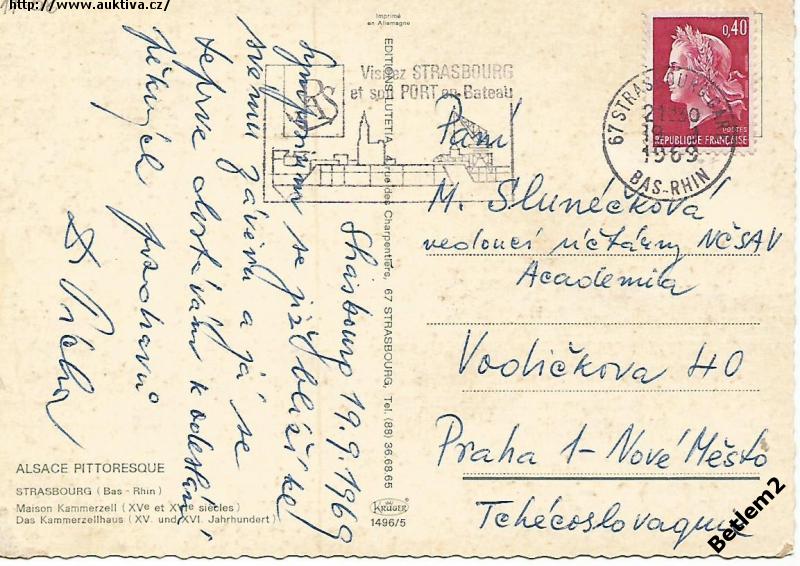 http://www.auktiva.cz/
Imprimé
en Allemagne
Visitez STRASBOURG
et son PORT en Bateau
0,40
POSTES
REPUBLIQUE FRANÇAISE
67 STRASBOURG-GARE
21H30
19-9
1969
BAS-RHIN
EDITIONS LUTETIA, 4 rue des Charpentiers, 67 STRASBOURG, Tel. (88) 36.68.65
Strasbourg 19. 9. 1969
Symposium se již blíží ke
svému závěru a já se
teprve dostávám k odeslání
pěkných pozdravů
Paní
M. Slunéčková
vedoucí účtárny NČSAV
Academia
Vodičkova 40
Praha 1-Nové Město
Tchécoslovaquie
ALSACE PITTORESQUE
STRASBOURG (Bas-Rhin)
Maison Kammerzell (XVe et XVIe siècles)
Das Kammerzellhaus (XV. und XVI. Jahrhundert)
KRÜGER
1496/5
Betlem2